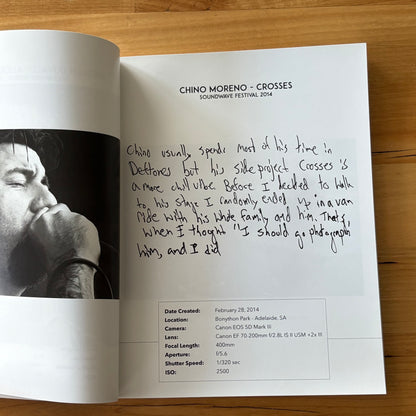 CHINO MORENO - CROSSES
SOUNDWAVE FESTIVAL 2014
Chino usually spends most of his time in
Deftones but his side project Crosses is
a more chill vibe. Before I decided to walk
to his stage I randomly ended up in a van
ride with his whole family and him. That's
when I thought "I should go photograph
him, and I did
Date Created: February 28, 2014
Location: Bonython Park - Adelaide, SA
Camera: Canon EOS 5D Mark III
Lens: Canon EF 70-200mm f/2.8L IS II USM +2x III
Focal Length: 400mm
Aperture: f/5.6
Shutter Speed: 1/320 sec
ISO: 2500